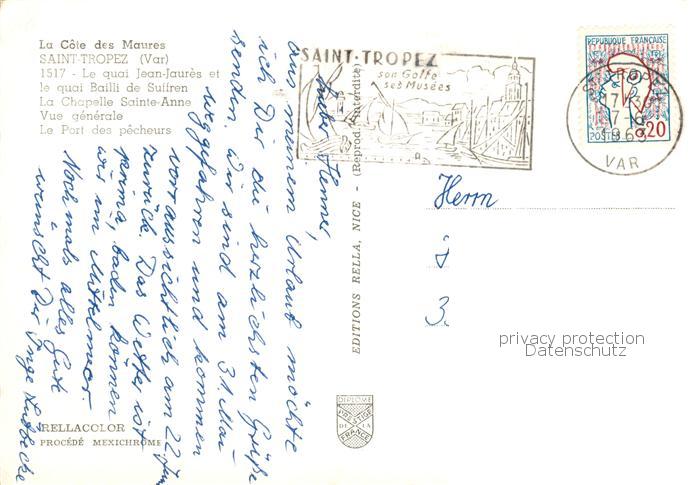 La Côte des Maures
SAINT-TROPEZ (Var)
1517 - Le quai Jean-Jaurès et
le quai Bailli de Suffren
La Chapelle Sainte-Anne
Vue générale
Le Port des pêcheurs
SAINT-TROPEZ
son Golfe
ses Musées
REPUBLIQUE FRANÇAISE
POSTES 0,20
17-
7-6
VAR
Lieber
aus meinem Urlaub möchte
ich Dir die herzlichsten Grüße
senden. Wir sind am 31 Mai
weggefahren und kommen
voraussichtlich am 22 Juni
zurück. Das Wetter ist
prima, baden können
wir im Mittelmeer.
Nochmals alles Gute
wünscht Dir Inge
EDITIONS RELLA, NICE - (Reprod. interdite)
Herrn
3.
privacy protection
Datenschutz
DIPLOME
PRESTIGE
DE LA
FRANCE
RELLACOLOR
PROCÉDÉ MEXICHROME